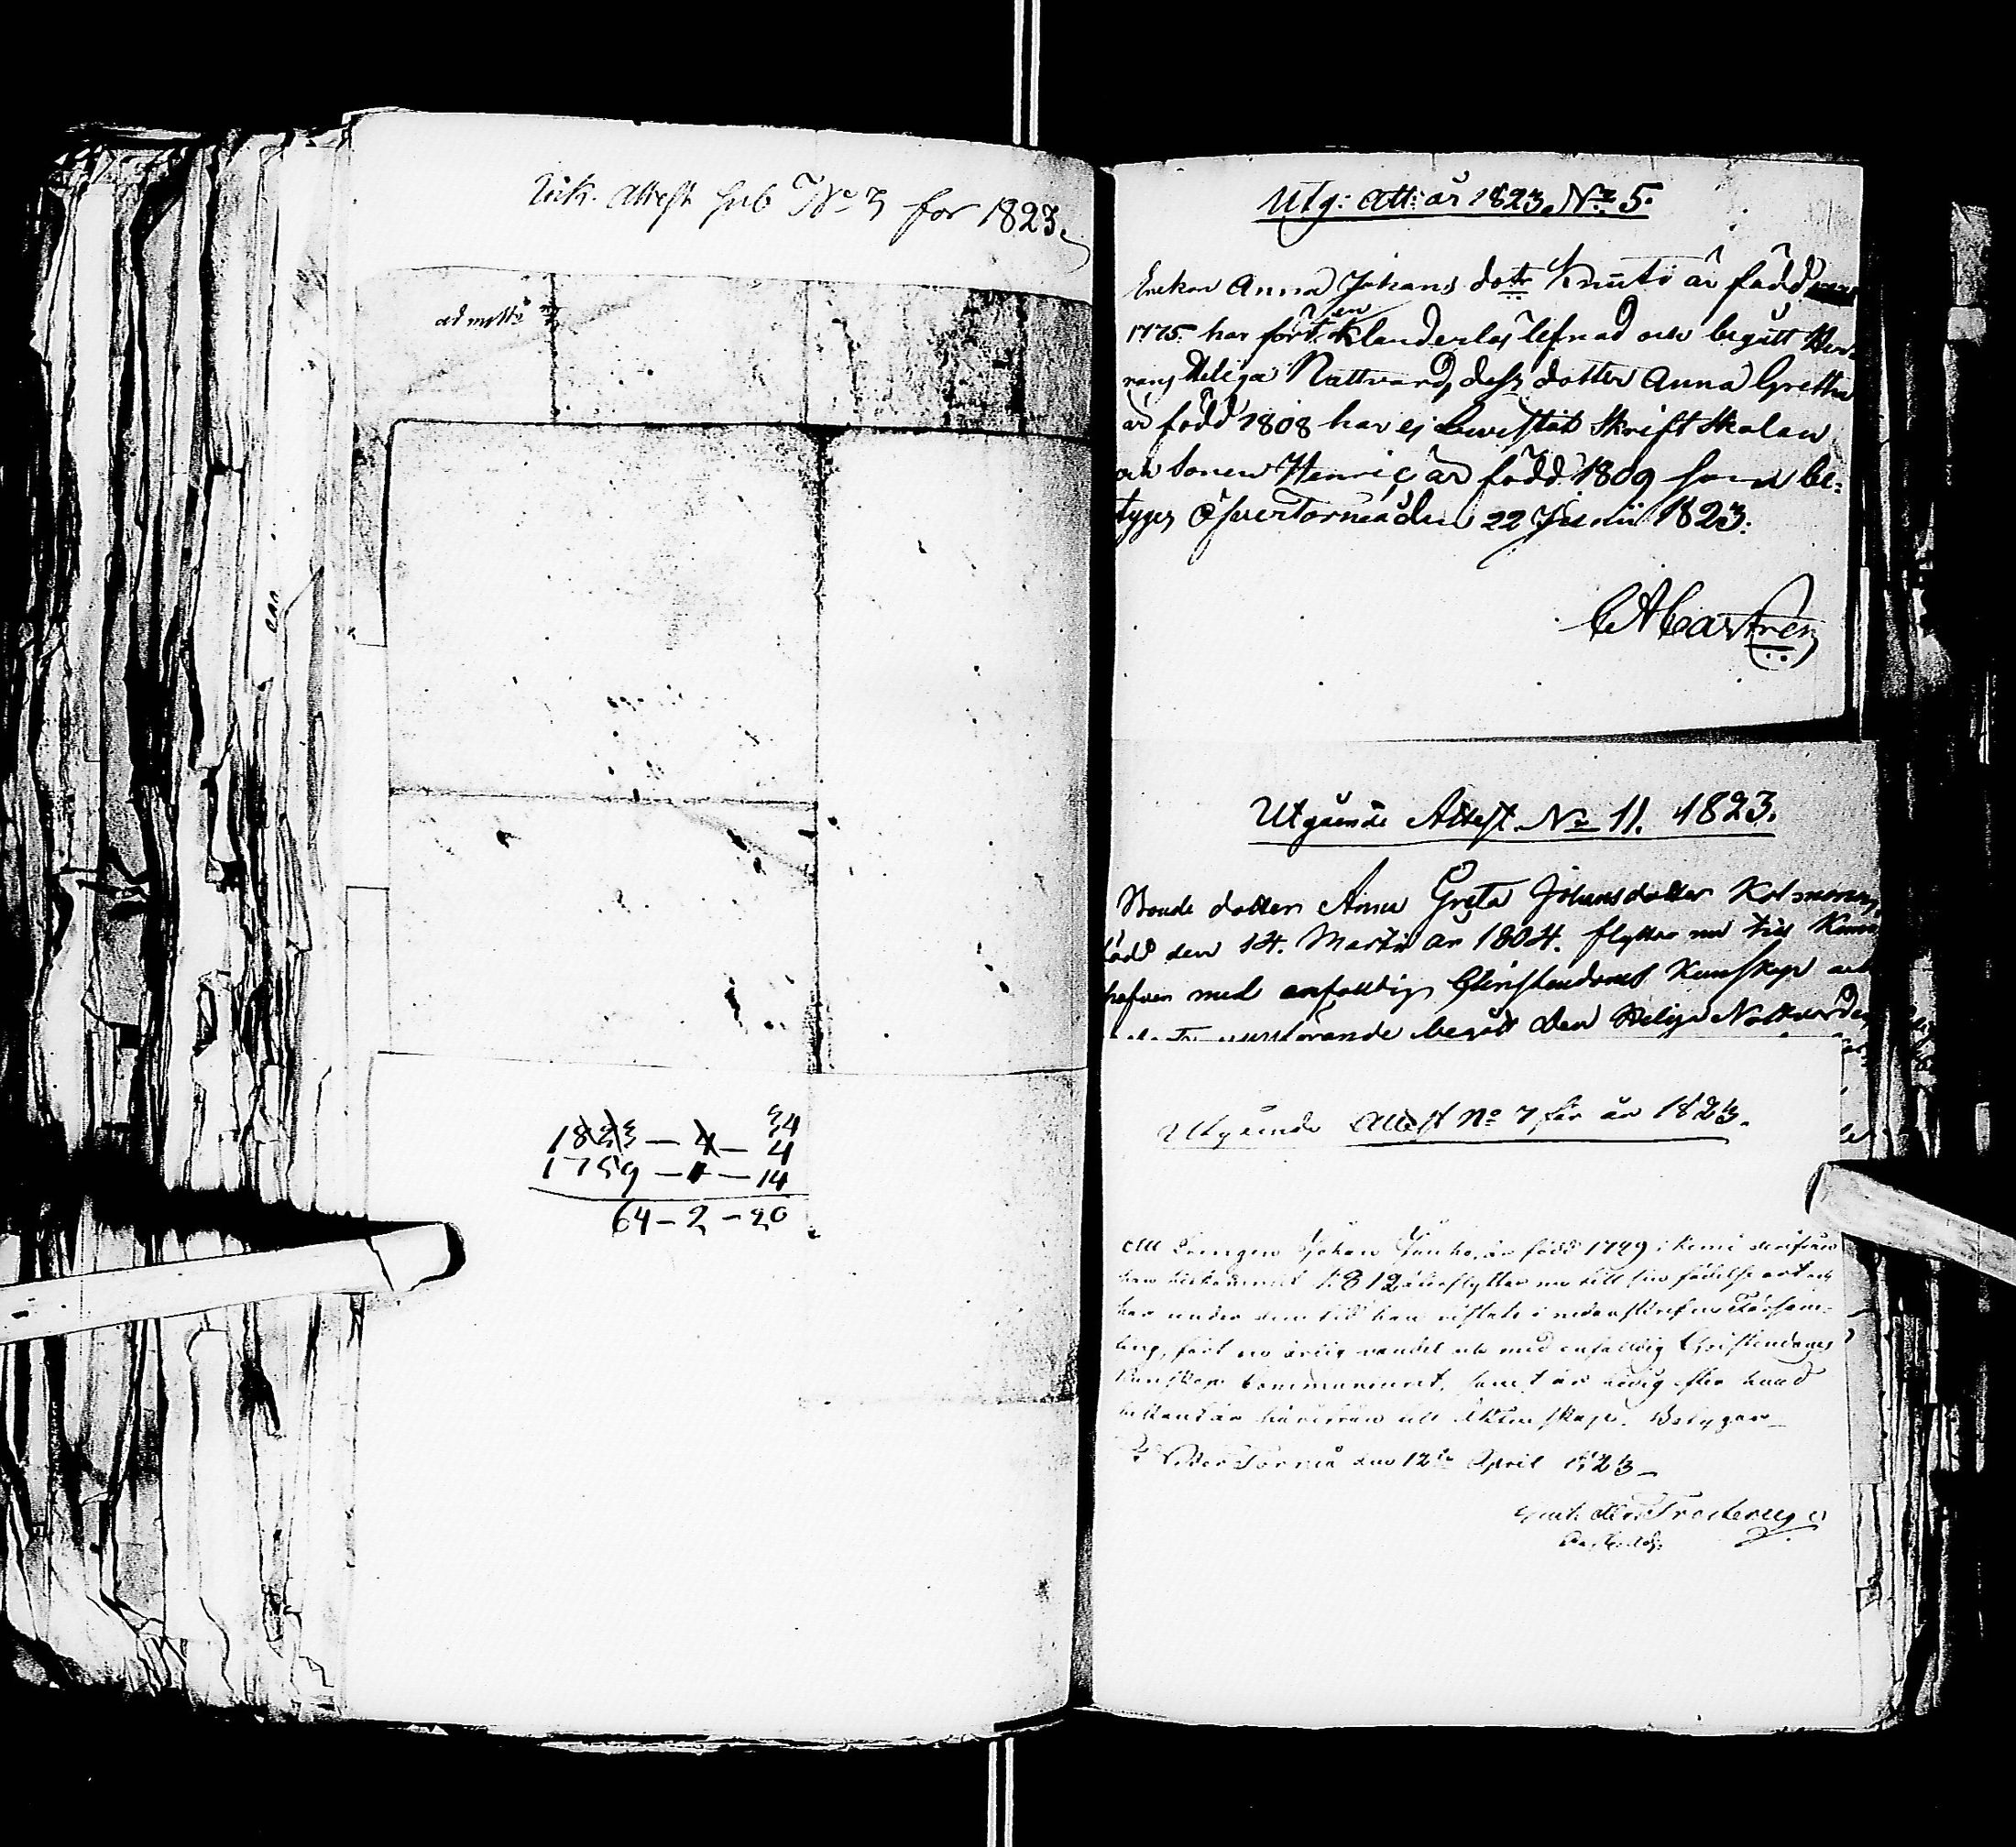 Attest sub No 3 for 1823.
ad
34
1823 — 4 — 4
1759 — 1 — 14
64 — 2 — 20
Utg: Att: år 1823. No 5.
Enkan Anna Johans dotr Knuuti är född
1775. har fört en klanderlös lefnad och begått Her-
rans Heliga Nattvard, dess dotter Anna Gretha
är född 1808 har ej bevistat Skrift Skolan
och Sonen Henric är född 1809 som be-
tyges Öfver Torneå den 22 Junii 1823.
C A Castrén
Utgående Attest No 11. 1823.
Bonde dotter Anna Greta Johansdotter
född den 14. Martii år 1804. flyttar nu till
med enfaldig Christendoms Kunskap och
begått den Helga Nattvarden
Utgående Attest No 7 för år 1823.
Att Drengen Johan är född 1749 i Kemi
han 1812 flyttar nu till sin födelse ort och
har under den tid han vistats i Församl-
ling, fört en ärlig vandel och med enfaldig Christendoms
Kunskap communicerat, samt är ledig
till Ägtenskap. Betygar
Neder Torneå den 12te April 1823